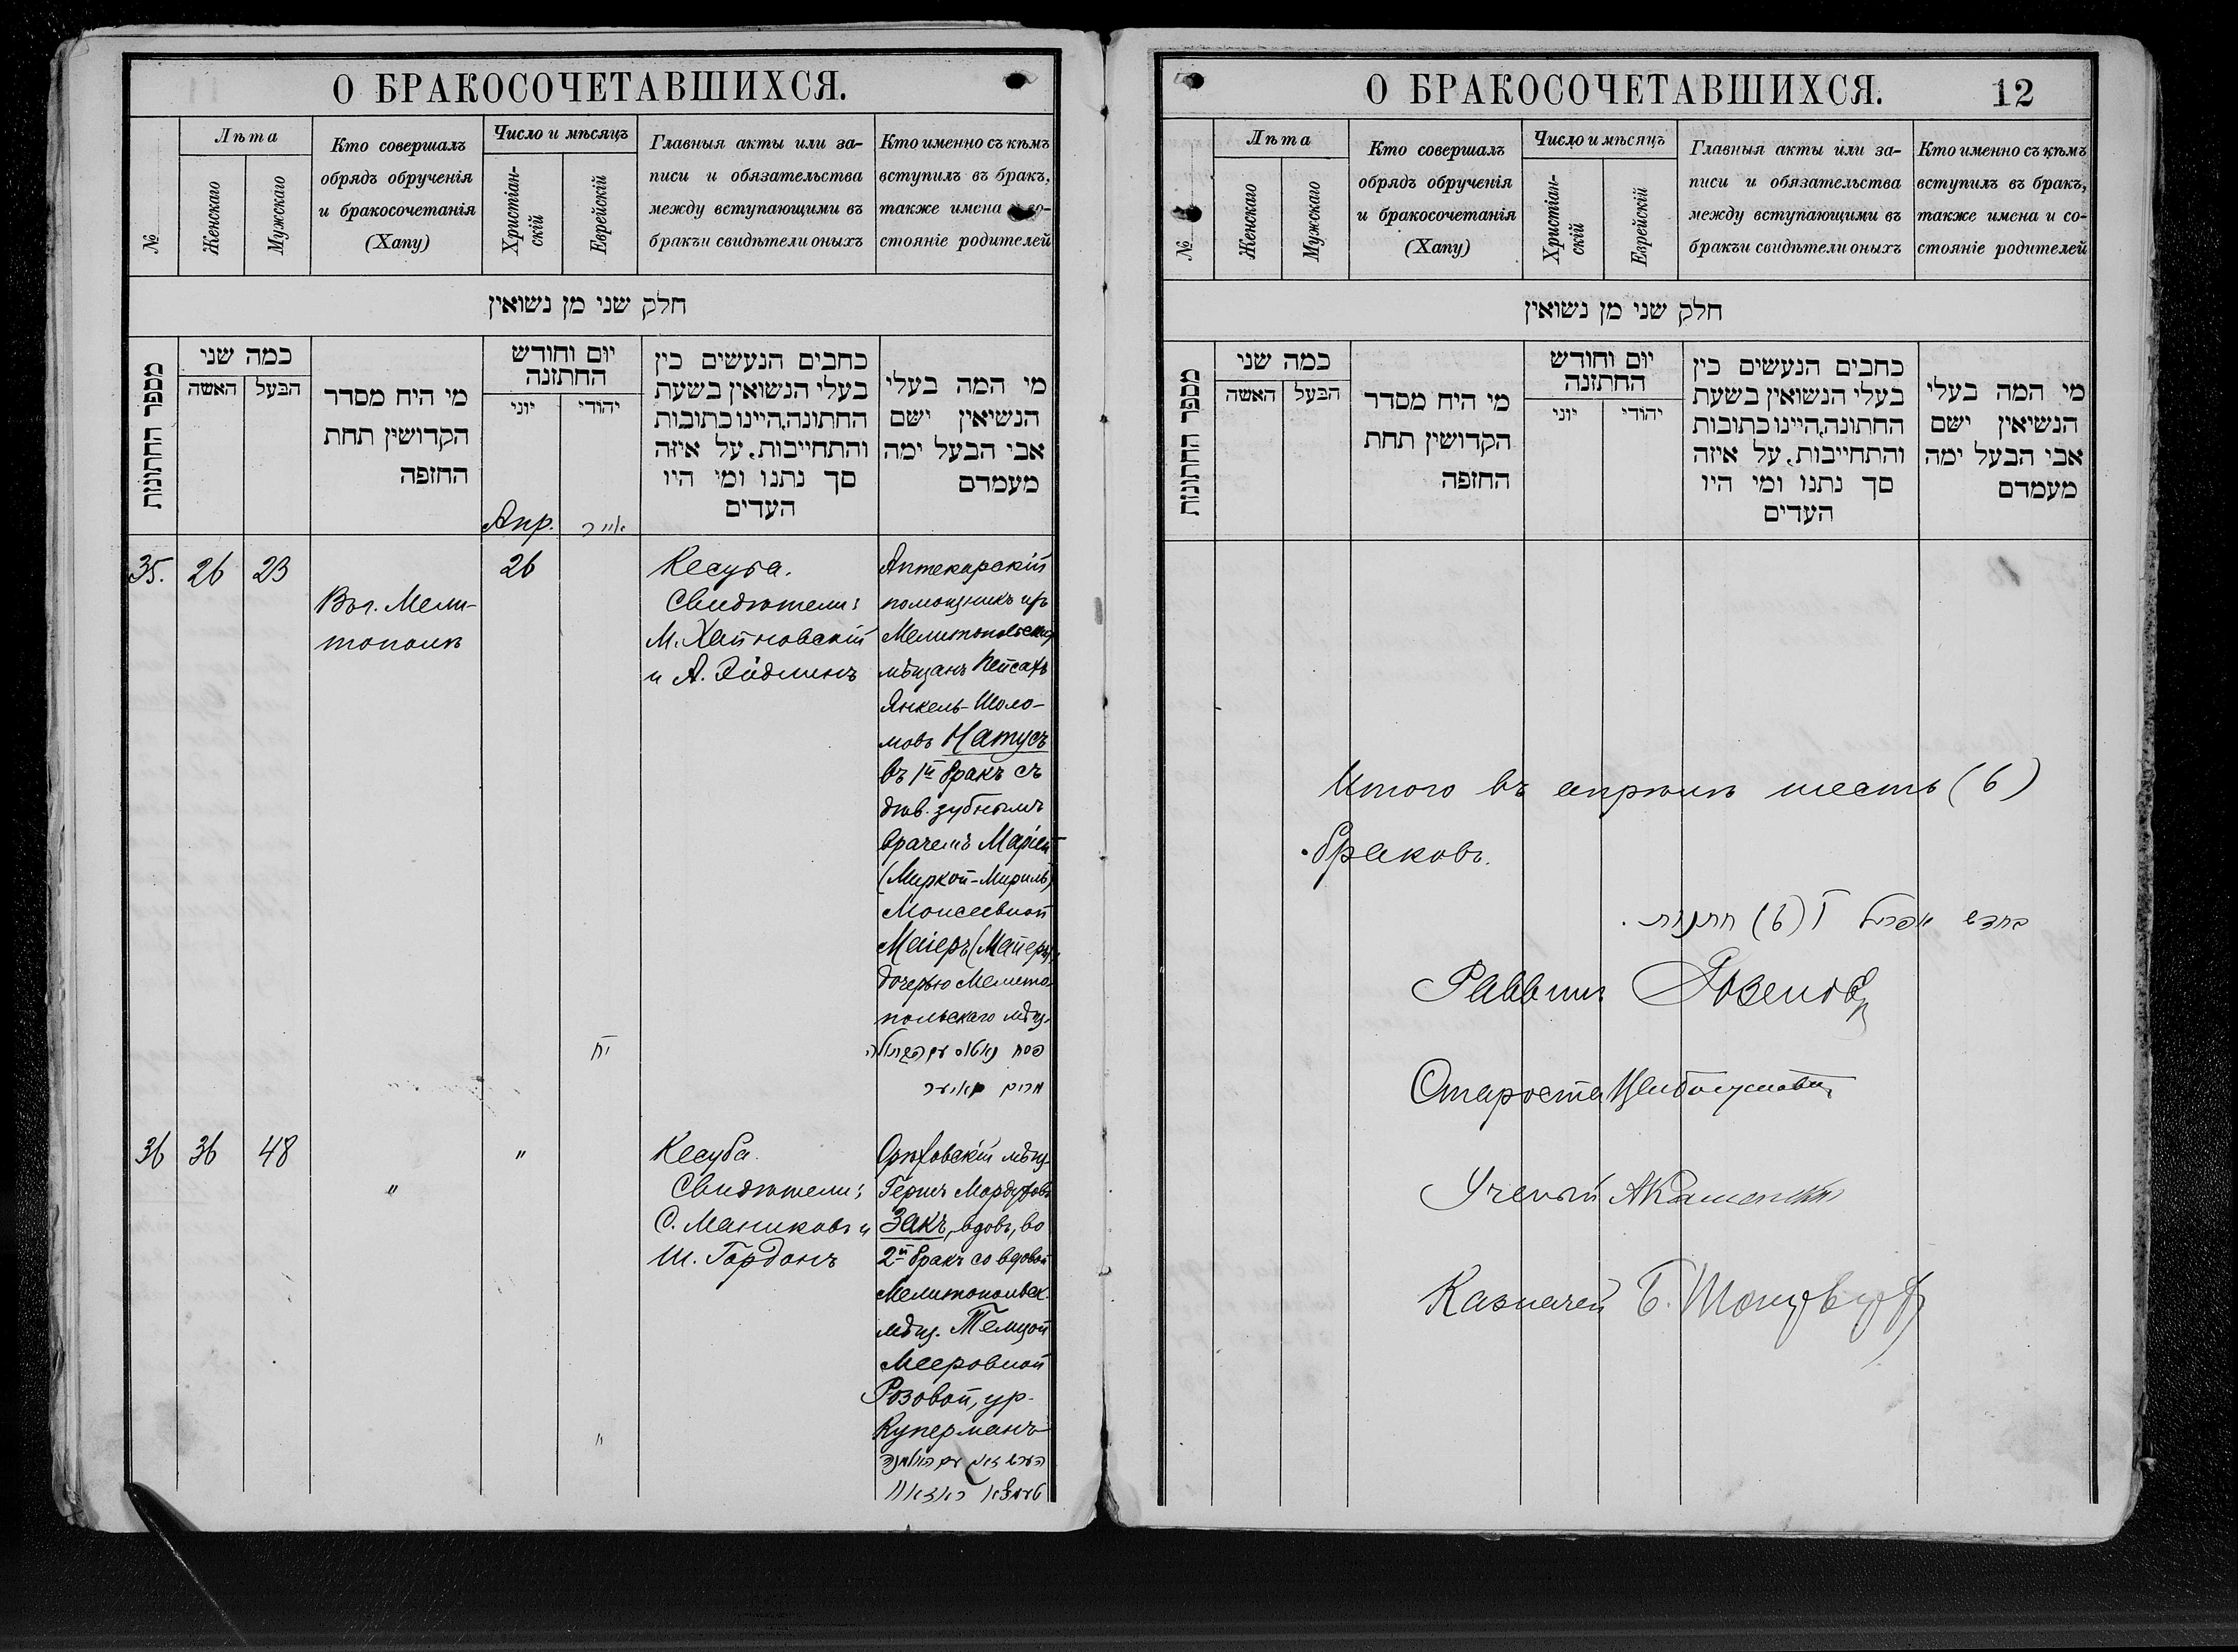 О БРАКОСОЧЕТАВШИХСЯ.
№
Лѣта
Женскаго
Мужскаго
Кто совершалъ
обрядъ обрученія
и бракосочетанія
(Хапу)
Число и мѣсяцъ
Христіан-
скій
Еврейскій
Главныя акты или за-
писи и обязательства
между вступающими въ
бракъи свидѣтели оныхъ
Кто именно съ кѣмъ
вступилъ въ бракъ,
также имена и со-
стояніе родителей
חלק שני מן נשואין
מספר החתונות
כמה שני
האשה
הבעל
מי היח מסדר
הקדושין תחת
החזפה
יום וחודש
החתזנה
יוני
יהודי
כחבים הנעשים כין
בעלי הנשואין בשעת
החתונה,היינו כתובות
והתחייבות, על איזה
סך נתנו ומי היו
העדים
מי המה בעלי
הנשיאין ישם
אבי הבעל ימה
מעמדם
Апр.
אייר
35.
26
23
Въ г. Мели-
тополѣ
26
יח
Кесуба.
Свидѣтели:
М. Хайновскій
и А. Эйдлинъ
Аптекарскій
помощникъ изъ
Мелитопольских
мѣщанъ Пейсахъ
Янкель-Шоло-
мовъ Натусъ
въ 1й бракъ съ
дѣв. зубнымъ
врачемъ Маріей
(Миркой-Мириль)
Моисеевной
Маіеръ (Майеръ),
дочерью Мелито-
польскаго мѣщ.
פסח נאטוס עם הבתולה
מרים מאיער
36
36
48
"
"
"
Кесуба.
Свидѣтели:
С. Маниковъ и
Ш. Гордонъ
Орѣховскій мѣщ.
Гершъ Мордуховъ
Закъ, вдовъ, во
2й бракъ со вдовой
Мелитопольск.
мѣщ. Темцой
Мееровной
Розовой, ур.
Куперманъ
הערש זאק עם האלמנה
ראזאוו
О БРАКОСОЧЕТАВШИХСЯ.
12
№
Лѣта
Женскаго
Мужскаго
Кто совершалъ
обрядъ обрученія
и бракосочетанія
(Хапу)
Число и мѣсяцъ
Христіан-
скій
Еврейскій
Главныя акты или за-
писи и обязательства
между вступающими въ
бракъи свидѣтели оныхъ
Кто именно съ кѣмъ
вступилъ въ бракъ,
также имена и со-
стояніе родителей
חלק שני מן נשואין
מספר החתונות
כמה שני
האשה
הבעל
מי היח מסדר
הקדושין תחת
החזפה
יום וחודש
החתזנה
יוני
יהודי
כחבים הנעשים כין
בעלי הנשואין בשעת
החתונה,היינו כתובות
והתחייבות, על איזה
סך נתנו ומי היו
העדים
מי המה בעלי
הנשיאין ישם
אבי הבעל ימה
מעמדם
Итого въ апрѣлѣ шесть (6)
браковъ.
בחדש אפריל ו (6) חתונות.
Раввинъ
Староста
Ученый
Казначей Б.